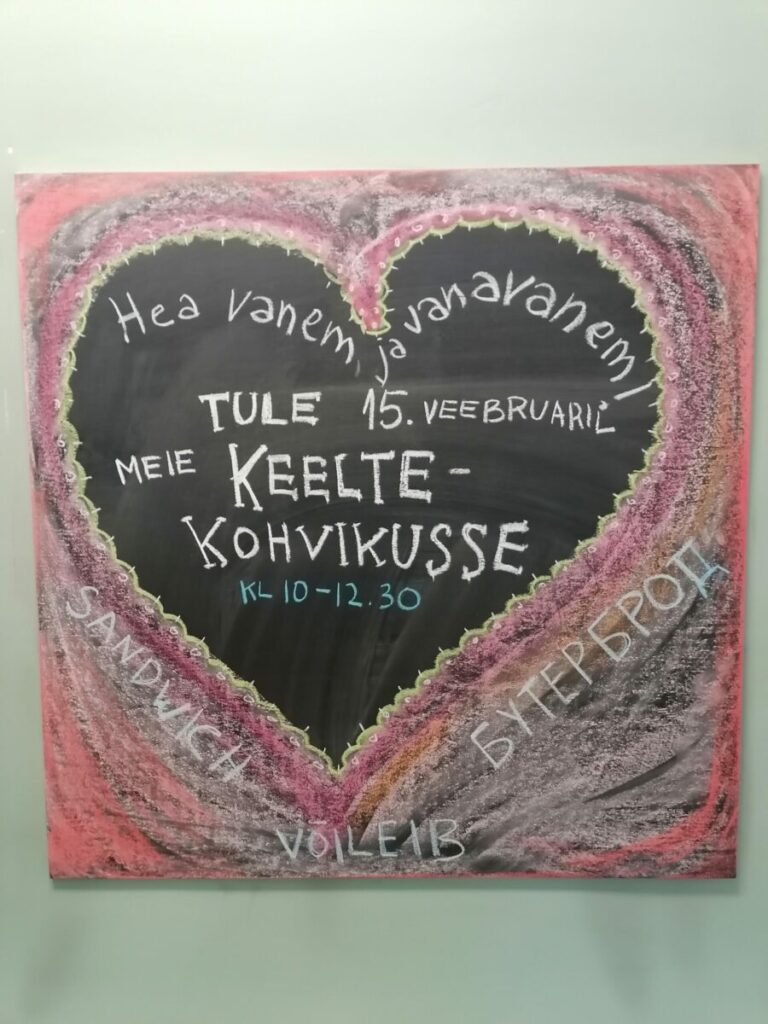 Hea vanem, ja vanavanem!
TULE 15. VEEBRUARIL
MEIE KEELTE-
KOHVIKUSSE
KL 10-12.30
SANDWICH
БУТЕРБРОД
VÕILEIB